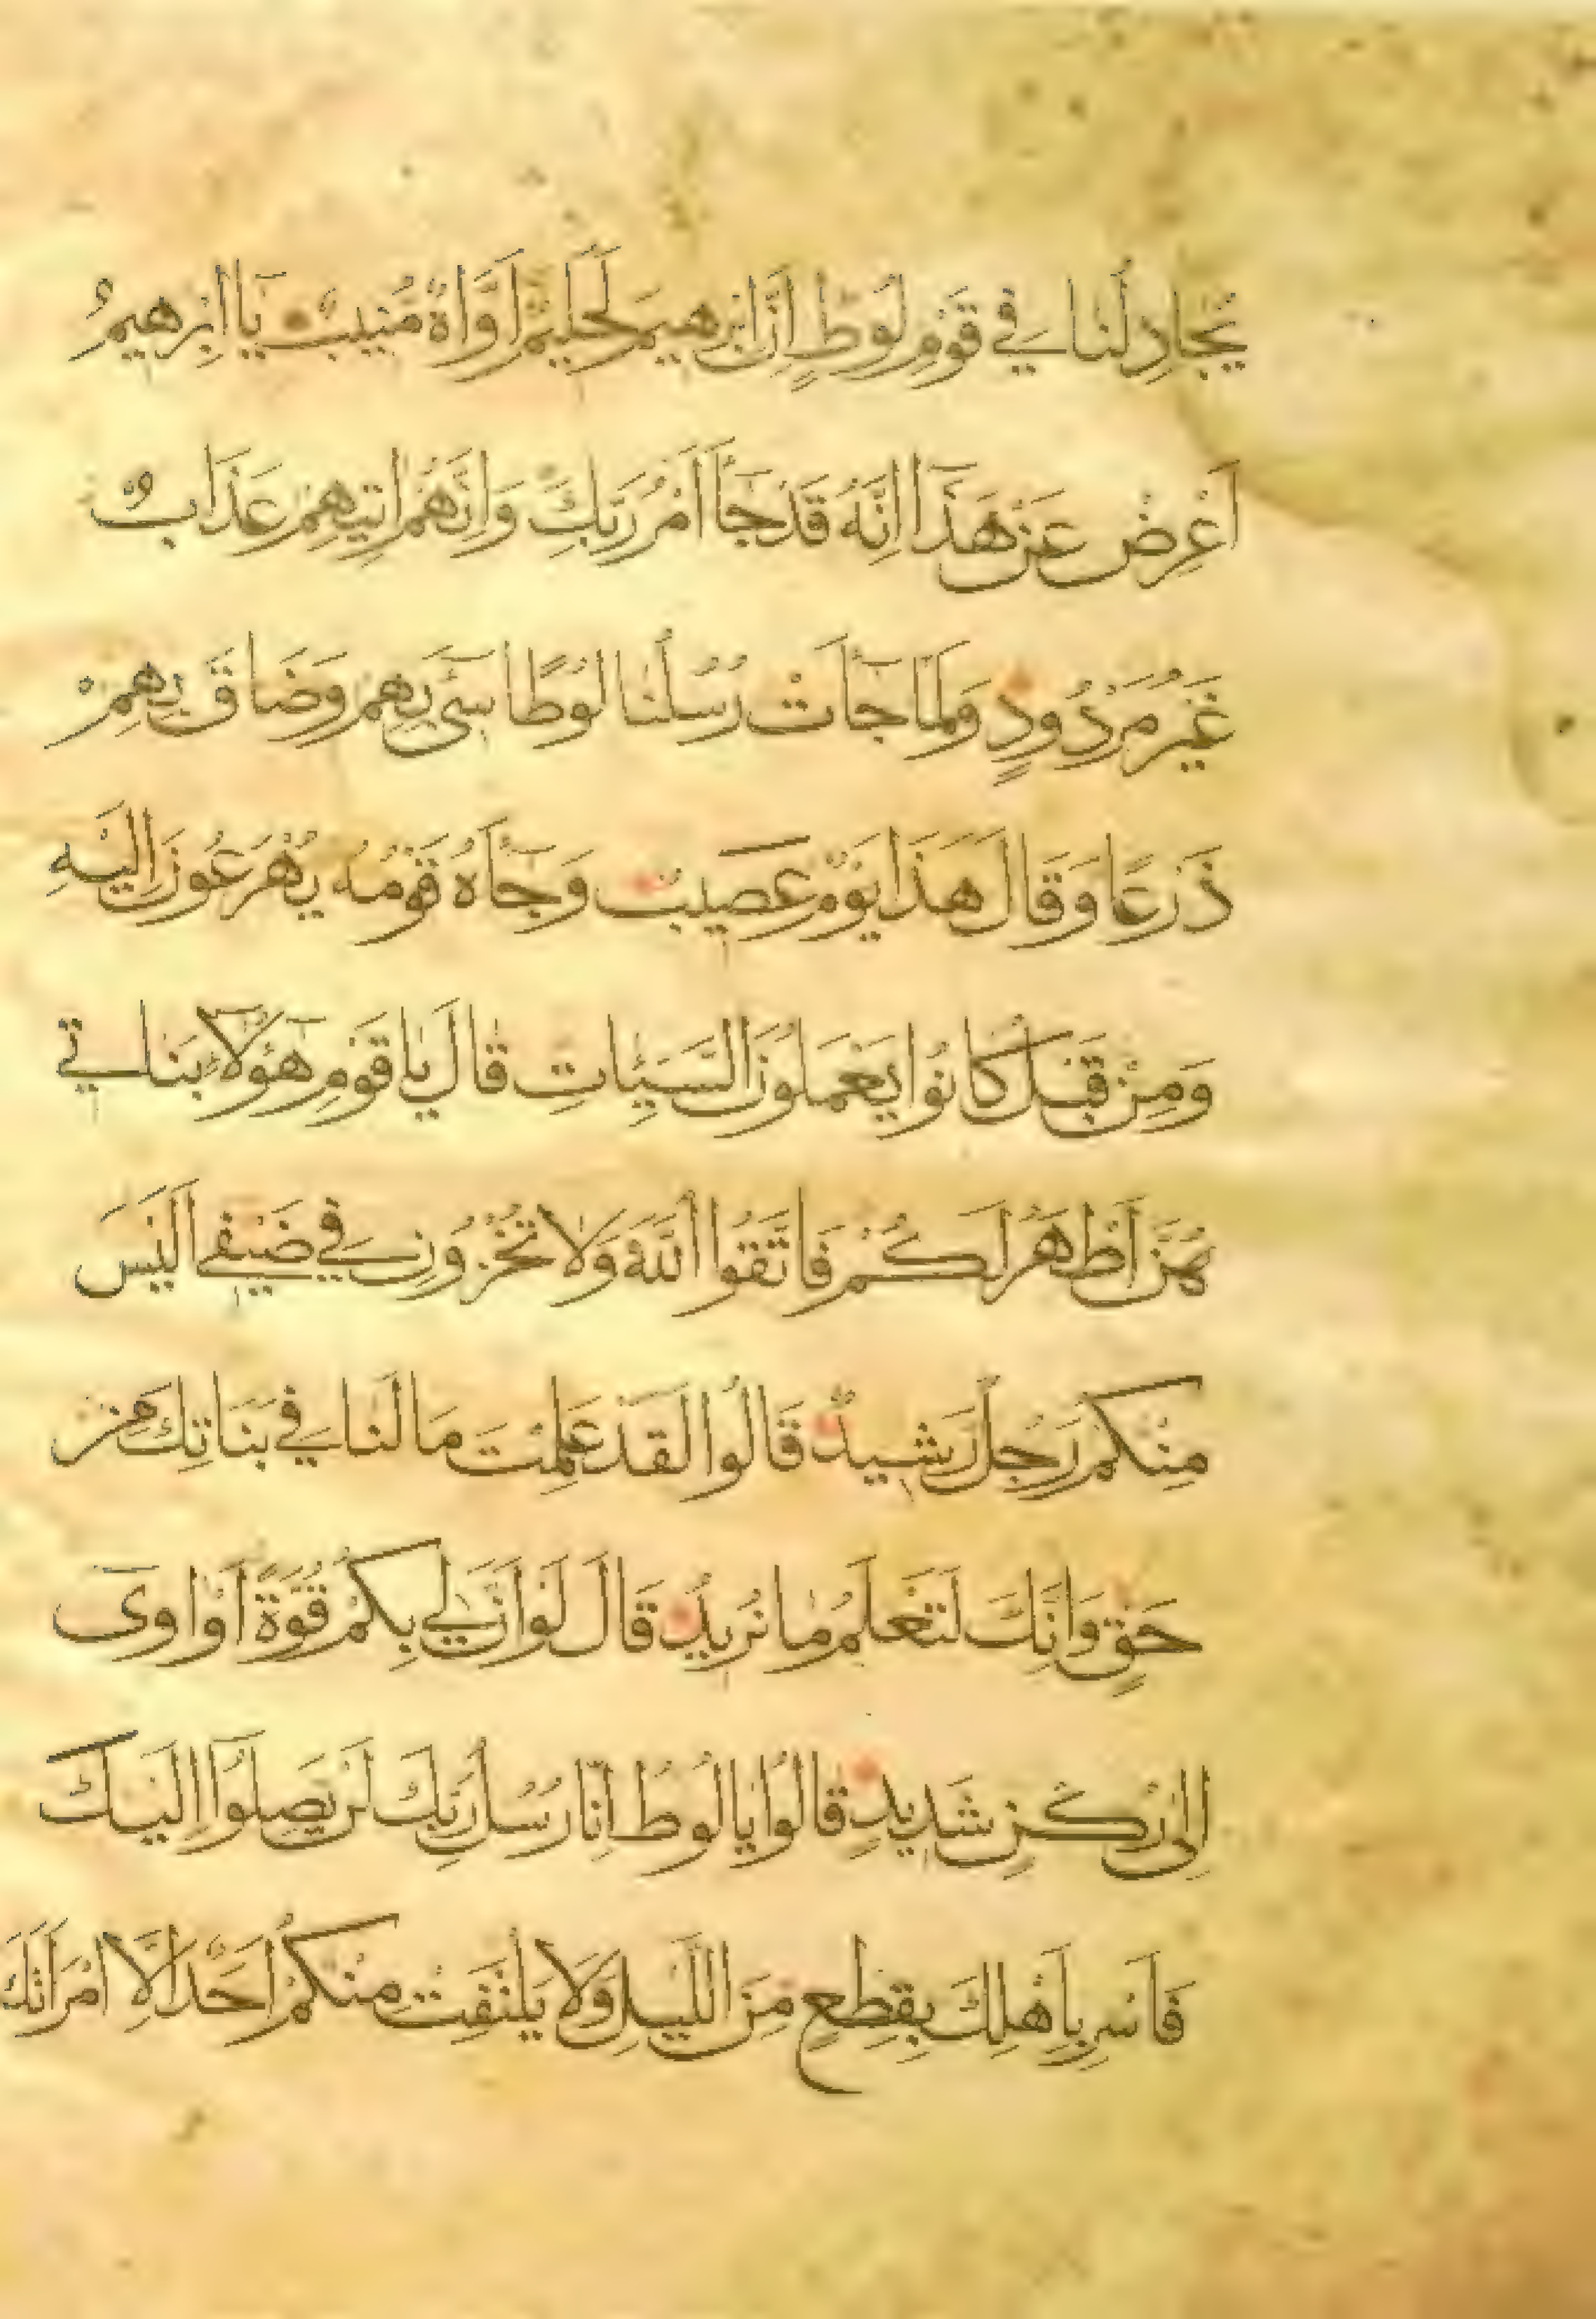 يُجَادِلُنَا فِي قَوْمِ لُوطٍ اِنَّ اِبْرٰهِيمَ لَحَلِيمٌ اَوَّاهٌ مُنِيبٌ يَا اِبْرٰهِيمُ
اَعْرِضْ عَنْ هَذَا اِنَّهُ قَدْ جَآءَ اَمْرُ رَبِّكَ وَاِنَّهُمْ اٰتِيهِمْ عَذَابٌ
غَيْرُ مَرْدُودٍ وَلَمَّا جَآءَتْ رُسُلُنَا لُوطًا سِىٓءَ بِهِمْ وَضَاقَ بِهِمْ
ذَرْعًا وَقَالَ هَذَا يَوْمٌ عَصِيبٌ وَجَآءَهُ قَوْمُهُ يُهْرَعُونَ اِلَيْهِ
وَمِنْ قَبْلُ كَانُوا يَعْمَلُونَ السَّيِّئَاتِ قَالَ يَا قَوْمِ هٓؤُلَآءِ بَنَاتِي
هُنَّ اَطْهَرُ لَكُمْ فَاتَّقُوا اللّٰهَ وَلَا تُخْزُونِ فِي ضَيْفِي اَلَيْسَ
مِنْكُمْ رَجُلٌ رَشِيدٌ قَالُوا لَقَدْ عَلِمْتَ مَا لَنَا فِي بَنَاتِكَ مِنْ
حَقٍّ وَاِنَّكَ لَتَعْلَمُ مَا نُرِيدُ قَالَ لَوْ اَنَّ لِي بِكُمْ قُوَّةً اَوْ اٰوِىٓ
اِلٰى رُكْنٍ شَدِيدٍ قَالُوا يَا لُوطُ اِنَّا رُسُلُ رَبِّكَ لَنْ يَصِلُوٓا اِلَيْكَ
فَاَسْرِ بِاَهْلِكَ بِقِطْعٍ مِنَ اللَّيْلِ وَلَا يَلْتَفِتْ مِنْكُمْ اَحَدٌ اِلَّا امْرَاَتَكَ